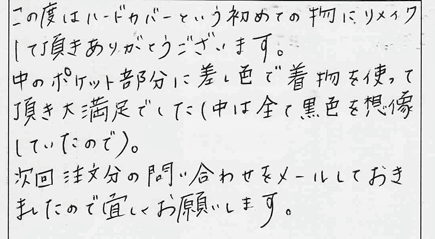 この度はハードカバーという初めての物にリメイク
して頂きありがとうございます。
中のポケット部分に差し色で着物を使って
頂き大満足でした(中は全て黒色を想像
していたので)。
次回注文分の問い合わせをメールしておき
ましたので宜しくお願いします。